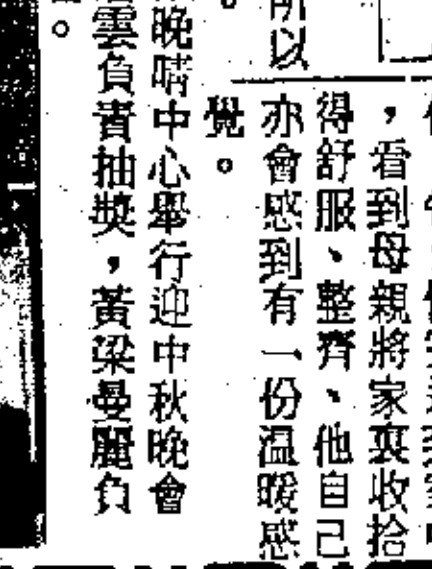 ，看到母親將家裏收拾
得舒服、整齊、他自己
亦會感到有一份溫暖感
覺。
所以
晚晴中心舉行迎中秋晚會
雲負責抽獎，黃梁曼麗負
。